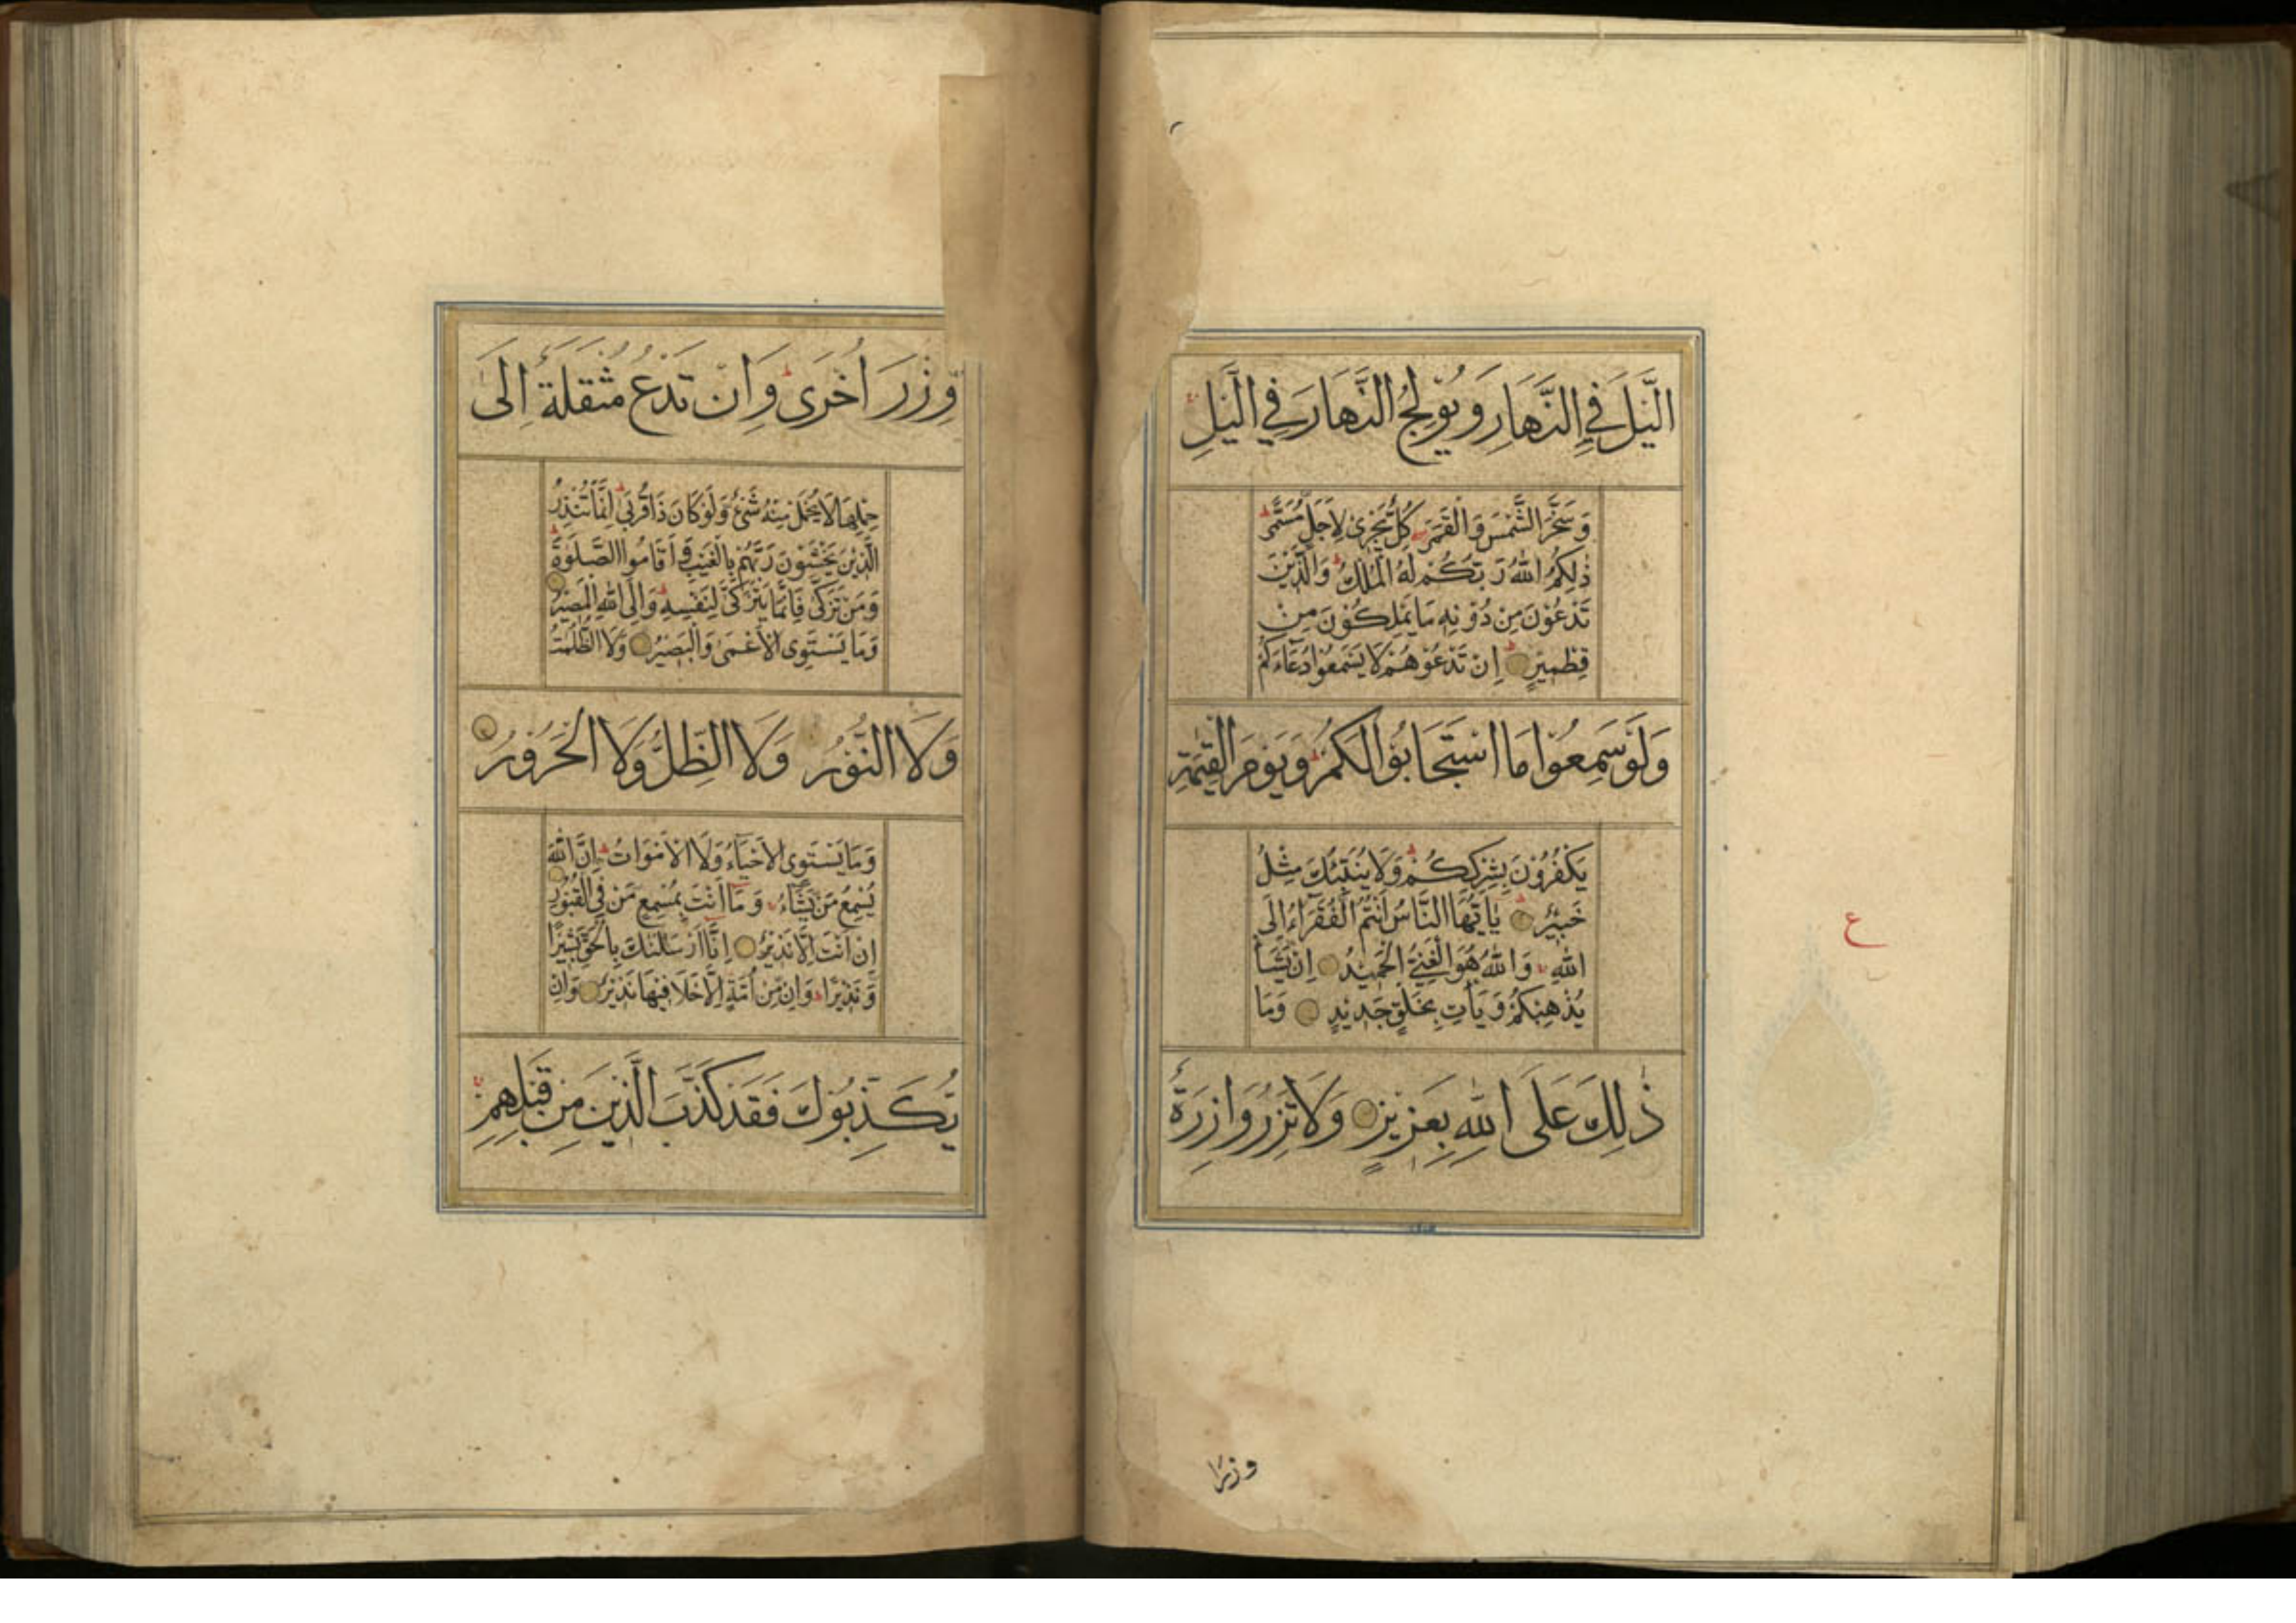 الَّيْلَ فِي النَّهَارِ وَيُوْلِجُ النَّهَارَ فِي الَّيْلِ
وَسَخَّرَ الشَّمْسَ وَالْقَمَرَ كُلٌّ يَّجْرِيْ لِاَجَلٍ مُّسَمًّى
ذٰلِكُمُ اللّٰهُ رَبُّكُمْ لَهُ الْمُلْكُ وَالَّذِيْنَ
تَدْعُوْنَ مِنْ دُوْنِهِ مَا يَمْلِكُوْنَ مِنْ
قِطْمِيْرٍ اِنْ تَدْعُوْهُمْ لَا يَسْمَعُوْا دُعَآءَكُمْ
وَلَوْ سَمِعُوْا مَا اسْتَجَابُوْا لَكُمْ وَيَوْمَ الْقِيٰمَةِ
يَكْفُرُوْنَ بِشِرْكِكُمْ وَلَا يُنَبِّئُكَ مِثْلُ
خَبِيْرٍ يٰاَيُّهَا النَّاسُ اَنْتُمُ الْفُقَرَآءُ اِلَى
اللّٰهِ وَاللّٰهُ هُوَ الْغَنِيُّ الْحَمِيْدُ اِنْ يَّشَأْ
يُذْهِبْكُمْ وَيَأْتِ بِخَلْقٍ جَدِيْدٍ وَمَا
ذٰلِكَ عَلَى اللّٰهِ بِعَزِيْزٍ وَلَا تَزِرُ وَازِرَةٌ
ع
وِّزْرَ اُخْرٰى وَاِنْ تَدْعُ مُثْقَلَةٌ اِلٰى
حِمْلِهَا لَا يُحْمَلْ مِنْهُ شَيْءٌ وَّلَوْ كَانَ ذَا قُرْبٰى اِنَّمَا تُنْذِرُ
الَّذِيْنَ يَخْشَوْنَ رَبَّهُمْ بِالْغَيْبِ وَاَقَامُوا الصَّلٰوةَ
وَمَنْ تَزَكّٰى فَاِنَّمَا يَتَزَكّٰى لِنَفْسِهِ وَاِلَى اللّٰهِ الْمَصِيْرُ
وَمَا يَسْتَوِي الْاَعْمٰى وَالْبَصِيْرُ وَلَا الظُّلُمٰتُ
وَلَا النُّوْرُ وَلَا الظِّلُّ وَلَا الْحَرُوْرُ
وَمَا يَسْتَوِي الْاَحْيَآءُ وَلَا الْاَمْوَاتُ اِنَّ اللّٰهَ
يُسْمِعُ مَنْ يَّشَآءُ وَمَا اَنْتَ بِمُسْمِعٍ مَّنْ فِي الْقُبُوْرِ
اِنْ اَنْتَ اِلَّا نَذِيْرٌ اِنَّا اَرْسَلْنٰكَ بِالْحَقِّ بَشِيْرًا
وَّنَذِيْرًا وَاِنْ مِّنْ اُمَّةٍ اِلَّا خَلَا فِيْهَا نَذِيْرٌ وَاِنْ
يُّكَذِّبُوْكَ فَقَدْ كَذَّبَ الَّذِيْنَ مِنْ قَبْلِهِمْ